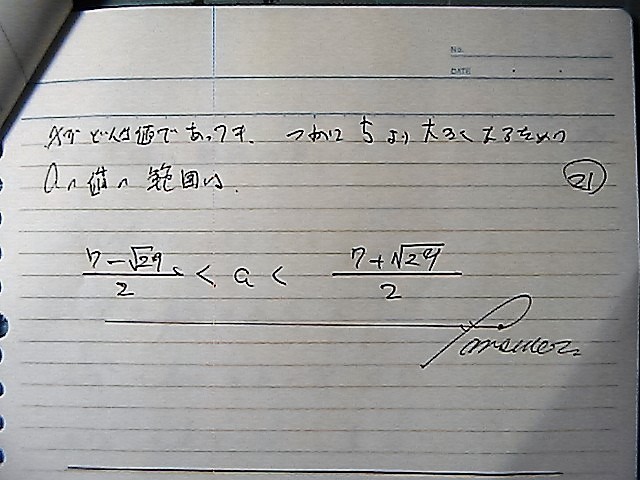 No.
DATE
xが どんな値で あっても、 つねに 5 より 大きく なるための
aの値の範囲は、
㉑
(7-√29)/2 < a < (7+√29)/2
answer